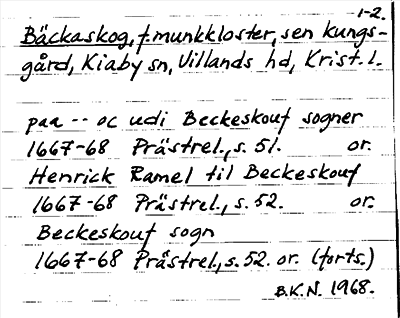 1-2.
Bäckaskog, f. munkkloster, sen kungs-
gård, Kiaby sn, Villands hd, Krist. l.
paa -- oc udi Beckeskouf sogner
1667-68 Prästrel., s. 51. or.
Henrick Ramel til Beckeskouf
1667-68 Prästrel., s. 52. or.
Beckeskouf sogn
1667-68 Prästrel., s. 52. or. (forts.)
B.K.N. 1968.